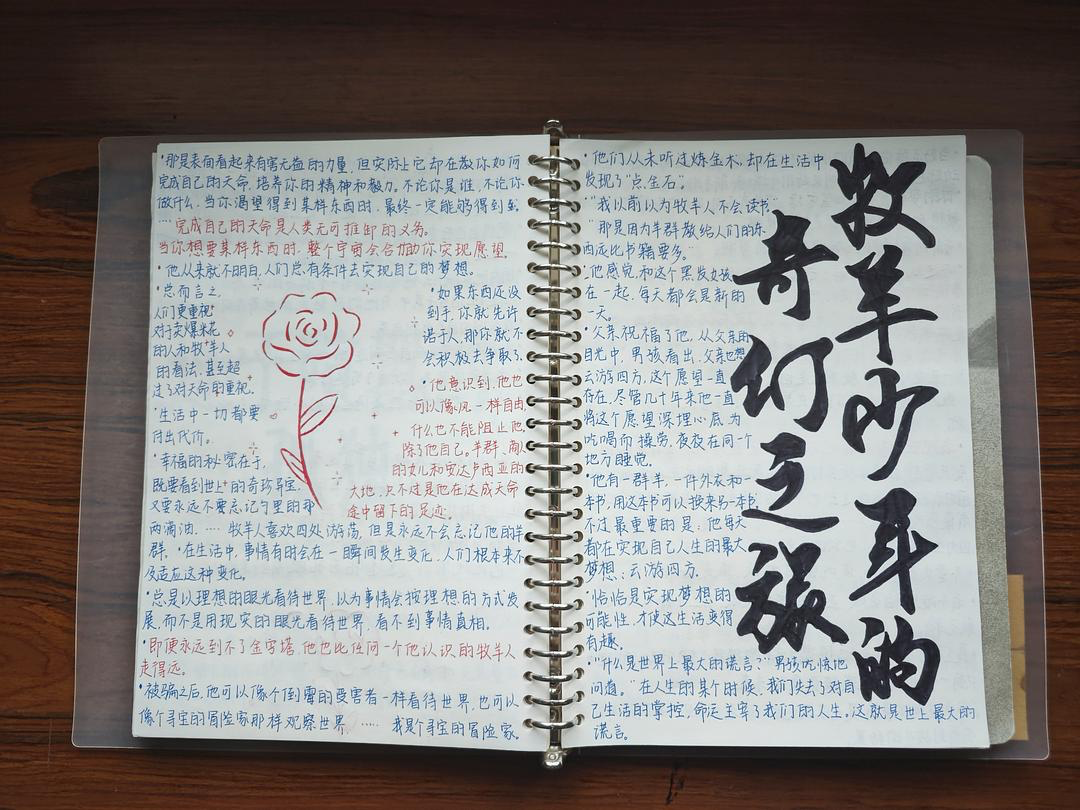 ·那是表面看起来有害无益的力量,但实际上它却在教你如何
完成自己的天命,培养你的精神和毅力。不论你是谁,不论你
做什么,当你渴望得到某样东西时,最终一定能够得到。
…完成自己的天命是人类无可推卸的义务。
当你想要某样东西时,整个宇宙会合力助你实现愿望。
·他从来就不明白,人们总有条件去实现自己的梦想。
·总而言之,
人们更重视
对于卖爆米花
的人和牧羊人
的看法,甚至超
过了对天命的重视。
·生活中一切都要
付出代价。
·幸福的秘密在于,
既要看到世上的奇珍异宝,
又要永远不要忘记勺里的那
·如果东西还没
到手,你就先许
诺于人,那你就不
会积极去争取了。
·他意识到,他也
可以像风一样自由,
什么也不能阻止他,
除了他自己。羊群、商人
的女儿和安达卢西亚的
大地,只不过是他在达成天命
途中留下的足迹。
两滴油。……牧羊人喜欢四处游荡,但是永远不会忘记他的羊
群。·在生活中,事情有时会在一瞬间发生变化,人们根本来不
及适应这种变化。
·总是以理想的眼光看待世界,以为事情会按理想的方式发
展,而不是用现实的眼光看待世界,看不到事情真相。
·即便永远到不了金字塔,他也比任何一个他认识的牧羊人
走得远。
·被骗之后,他可以像个倒霉的受害者一样看待世界,也可以
像个寻宝的冒险家那样观察世界……我是个寻宝的冒险家。
·他们从未听过炼金术,却在生活中
发现了“点金石”。
·“我以前以为牧羊人不会读书。”
“那是因为羊群教给人们的东
西远比书籍要多。”
·他感觉,和这个黑发女孩
在一起,每天都会是新的
一天。
·父亲祝福了他,从父亲的
目光中,男孩看出,父亲也想
云游四方,这个愿望一直
存在,尽管几十年来他一直
将这个愿望深埋心底,为
吃喝而操劳,夜夜在同一个
地方睡觉。
·他有一群羊,一件外衣和一
本书,用这本书可以换来另一本书,
不过最重要的是:他每天
都在实现自己人生的最大
梦想:云游四方。
·恰恰是实现梦想的
可能性,才使这生活变得
有趣。
·“什么是世界上最大的谎言?”男孩吃惊地
问道。“在人生的某个时候,我们失去了对自
己生活的掌控,命运主宰了我们的人生。这就是世上最大的
谎言。
牧羊少年的
奇幻之旅